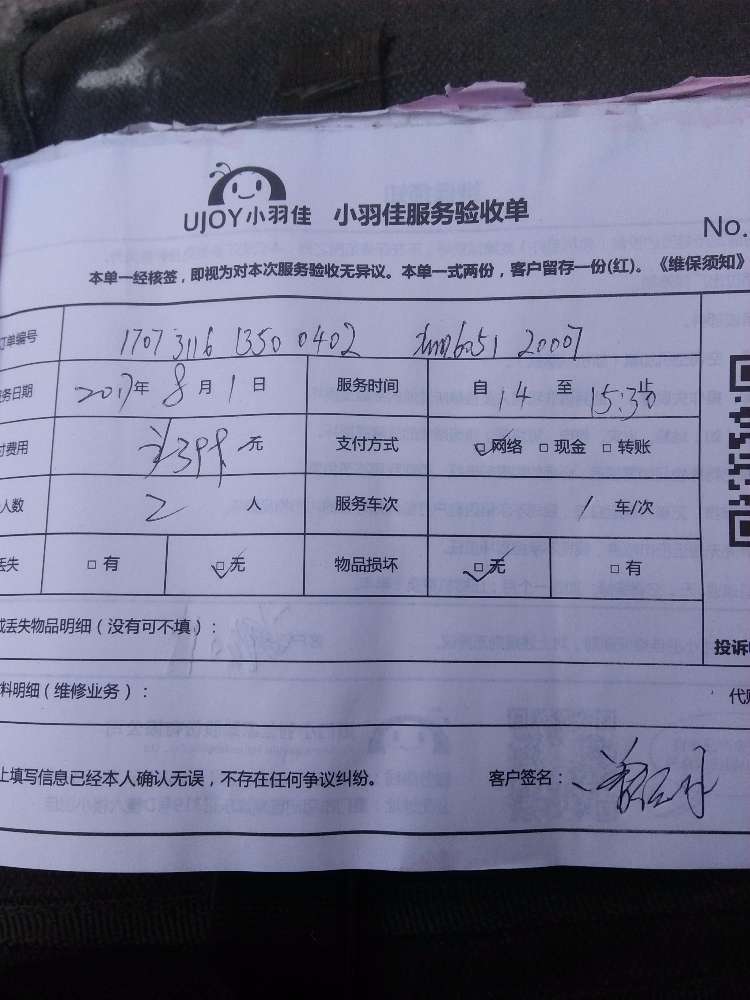 UJOY小羽佳 小羽佳服务验收单
No.
本单一经核签，即视为对本次服务验收无异议。本单一式两份，客户留存一份(红)。《维保须知》
订单编号 1707 3116 1350 0402 6051 20007
务日期 2017年 8月 1日 服务时间 自 14 至 15:30止
付费用 ¥399元 支付方式 ☑网络 □现金 □转账
人数 2 人 服务车次 1 车/次
丢失 □有 ☑无 物品损坏 ☑无 □有
或丢失物品明细（没有可不填）：
投诉
料明细（维修业务）：
代
上填写信息已经本人确认无误，不存在任何争议纠纷。 客户签名：